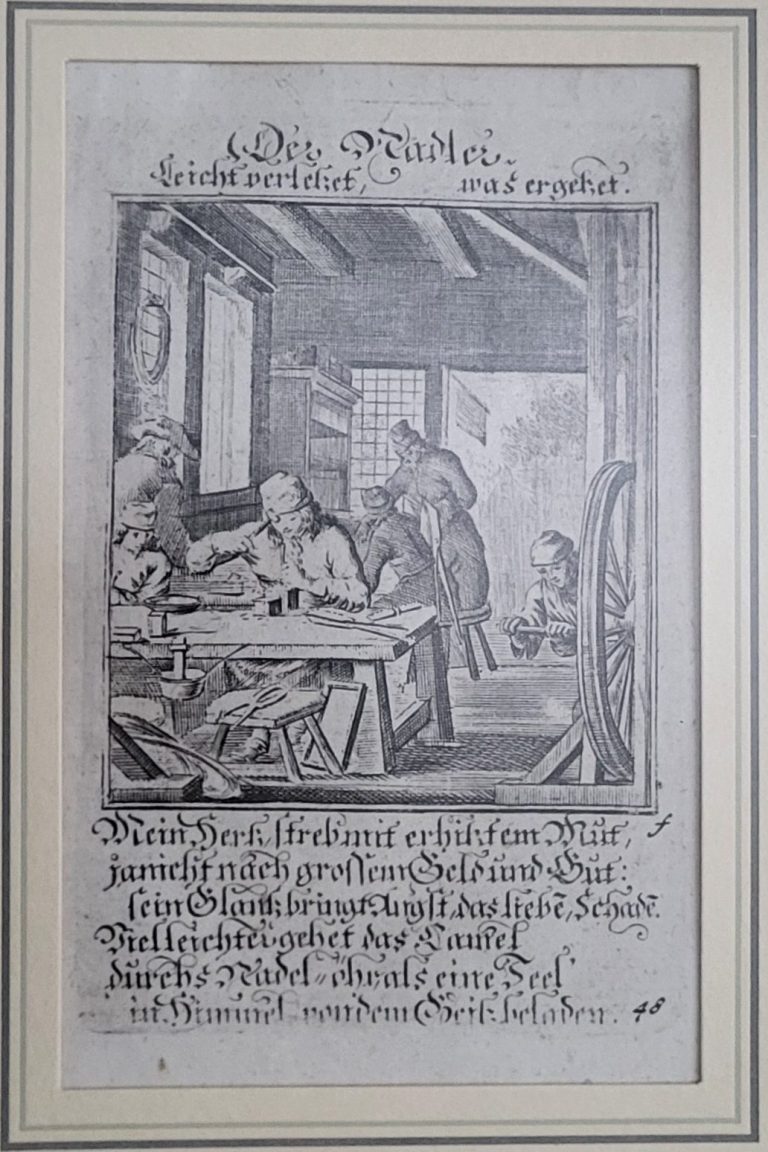 Der Nadler.
Leicht verletzet, was ergetzet.
Mein Hertz, streb mit erhitztem Mut,
ja nicht nach grossem Geld und Gut:
sein Glantz bringt Angst, das lieben, Schaden.
Viel leichter gehet das Cameel
durchs Nadel-öhr, als eine Seel
in Himmel von dem Geitz beladen. 48